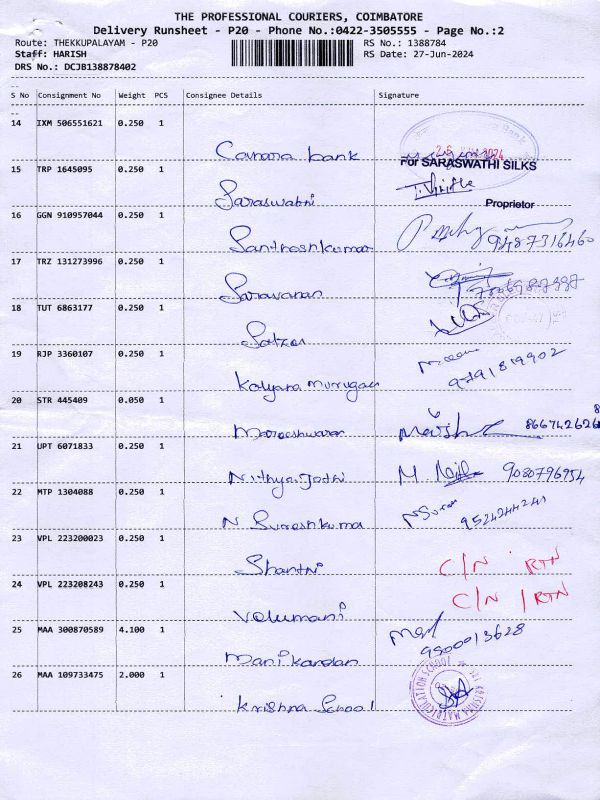 THE PROFESSIONAL COURIERS, COIMBATORE
Delivery Runsheet - P20 - Phone No.:0422-3505555 - Page No.:2
Route: THEKKUPALAYAM - P20 RS No.: 1388784
Staff: HARISH RS Date: 27-Jun-2024
DRS No.: DCJB138878402
S No Consignment No Weight PCS Consignee Details Signature
14 IXM 506551621 0.250 1 Canara bank
For SARASWATHI SILKS
15 TRP 1645095 0.250 1 Saraswathi
Proprietor
16 GGN 910957044 0.250 1 Santhoshkumar 9487316460
17 TRZ 131273996 0.250 1 Saravanan
18 TUT 6863177 0.250 1
19 RJP 3360107 0.250 1 Kalyana murugan 9791819902
20 STR 445409 0.050 1 Mareeshwaran
21 UPT 6071833 0.250 1 Nithya Jothi 9080796954
22 MTP 1304088 0.250 1 N Sureshkumar N Suresh 9524244241
23 VPL 223200023 0.250 1 Shanthi C/N RTN
24 VPL 223208243 0.250 1 Velumani C/N / RTN
25 MAA 300870589 4.100 1 Manikandan 9500013628
26 MAA 109733475 2.000 1 Krishna School